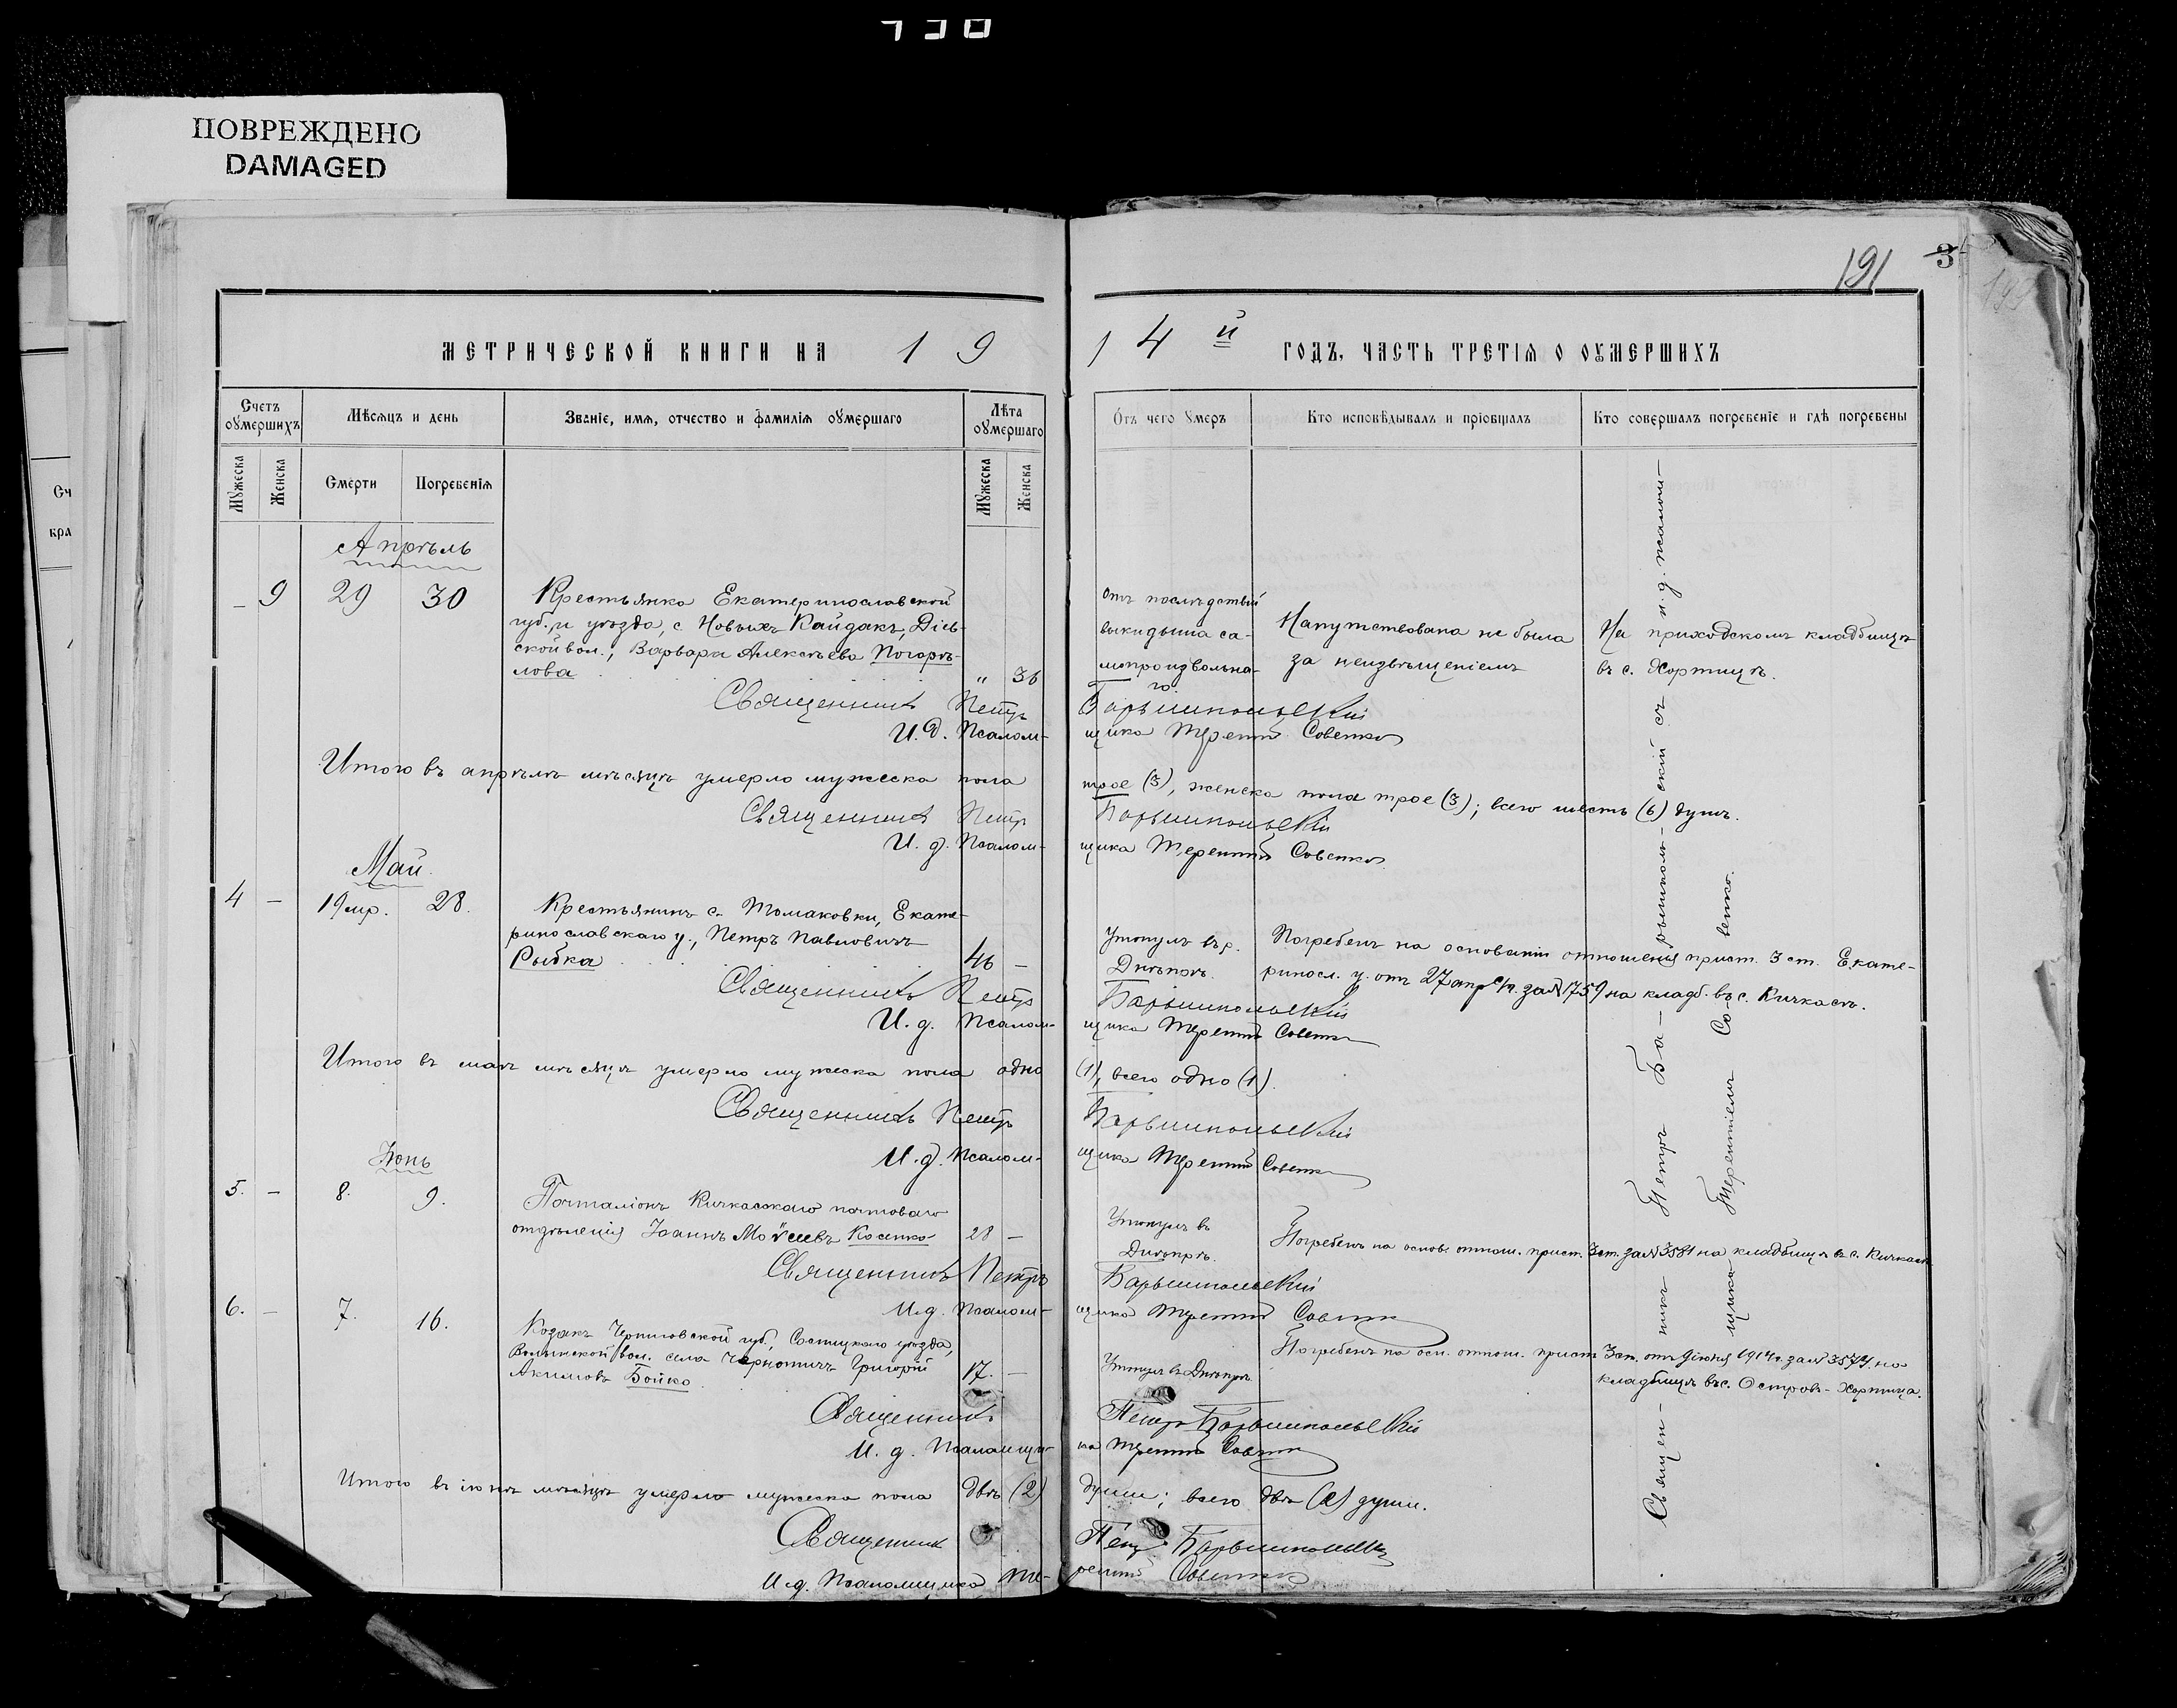 ПОВРЕЖДЕНО
DAMAGED
191 3
МЕТРИЧЕСКОЙ КНИГИ НА 19 14й ГОДЪ, ЧАСТЬ ТРЕТІѦ О ОУМЕРШИХЪ
Счетъ оумершихъ
Мѣсѧцъ и день
Званіе, имѧ, отчество и фамиліѧ оумершаго
Лѣта оумершаго
Отъ чего умеръ
Кто исповѣдывалъ и пріобщалъ
Кто совершалъ погребеніе и гдѣ погребены
Мужеска
Женска
Смерти
Погребеніѧ
Мужеска
Женска
Апрѣль
– 9 29 30
Крестьянка Екатеринославской
губ. и уѣзда, с. Новыхъ Кайдакъ, Діев-
ской вол., Варвара Алексѣева Погорѣ-
лова " 36
Отъ послѣдствій
выкидыша са-
мопроизвольна-
го.
Напутствована не была
за неизвѣщеніемъ
На приходскомъ кладбищѣ
въ с. Хортицѣ.
Священникъ Петръ Барышпольскій
И. д. Псалом- щика Терентій Совенко
Итого въ апрѣлѣ мѣсяцѣ умерло мужеска пола трое (3), женска пола трое (3); всего шесть (6) душъ.
Священникъ Петръ Барышпольскій
И. д. Псалом- щика Терентій Совенко
Май
4 – 19 апр. 28.
Крестьянинъ с. Томаковки, Екате-
ринославскаго у., Петръ Павловичъ
Рыбка 46 –
Утонулъ въ р.
Днѣпрѣ.
Погребенъ на основаніи отношенія прист. 3 ст. Екате-
риносл. у. отъ 27 апр с/г. за № 1759 на кладб. въ с. Кичкасѣ.
Священникъ Петръ Барышпольскій
И. д. Псалом- щика Терентій Совенко
Итого въ маѣ мѣсяцѣ умерло мужеска пола одно (1), всего одно (1).
Священникъ Петръ Барышпольскій
И. д. Псалом- щика Терентій Совенко
Іюнь
5. – 8. 9.
Почталіонъ Кичкасскаго почтоваго
отдѣленія Іоаннъ Моѵсеевъ Косенко 28 –
Утонулъ въ
Днѣпрѣ.
Погребенъ на основ. отнош. прист. 3 ст. за № 3581 на кладбищѣ въ с. Кичкасѣ
Священникъ Петръ Барышпольскій
И. д. Псалом- щика Терентій Совенко
6. – 7. 16.
Козакъ Черниговской губ., Сосницкаго уѣзда,
Волынской вол. села Григорій
Акимовъ Бойко 17. –
Утонулъ въ Днѣпрѣ.
Погребенъ на осн. отнош. прист. 3 ст. отъ 9 іюня 1914 г. за № 3574 на
кладбищѣ въ с. Островъ-Хортица.
Священникъ Петръ Барышпольскій
И. д. Псаломщи- ка Терентій Совенко
Итого въ іюнѣ мѣсяцѣ умерло мужеска пола двѣ (2) души; всего двѣ (2) души.
Священникъ Петръ Барышпольскій
И. д. Псаломщика Те- рентій Совенко
Священ- никъ Петръ Ба- рышполь- скій съ и. д. псалом-
щика Терентіемъ Со- венко.